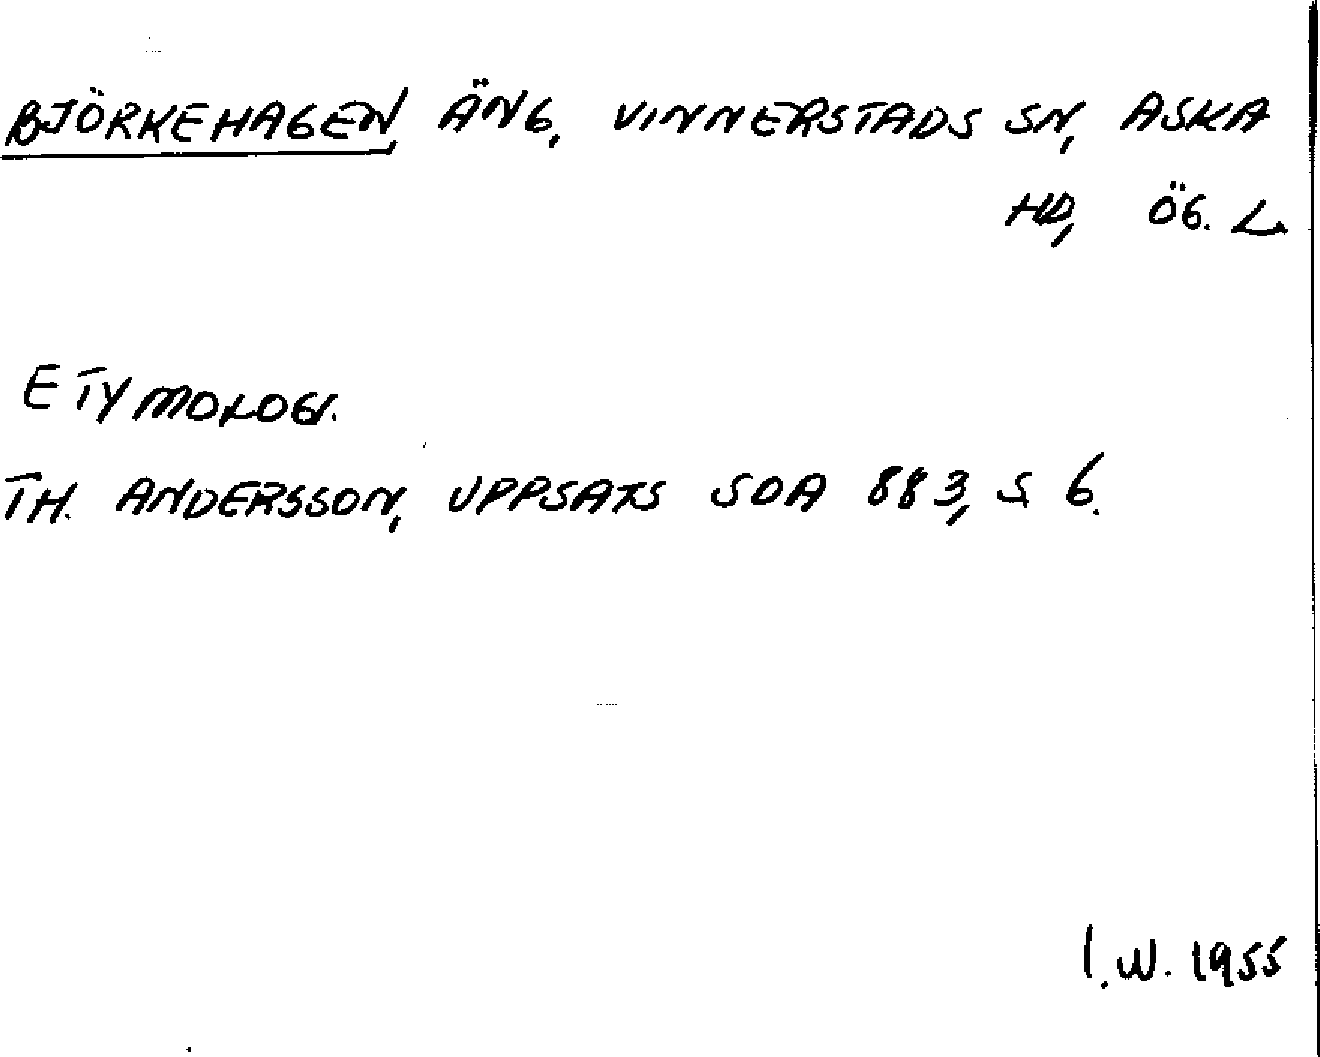 BJÖRKEHAGEN, ÄNG, VINNERSTADS SN, ASKA
HD, ÖG. L.
ETYMOLOGI.
TH. ANDERSSON, UPPSATS SOA 883, S 6.
I.W. 1955